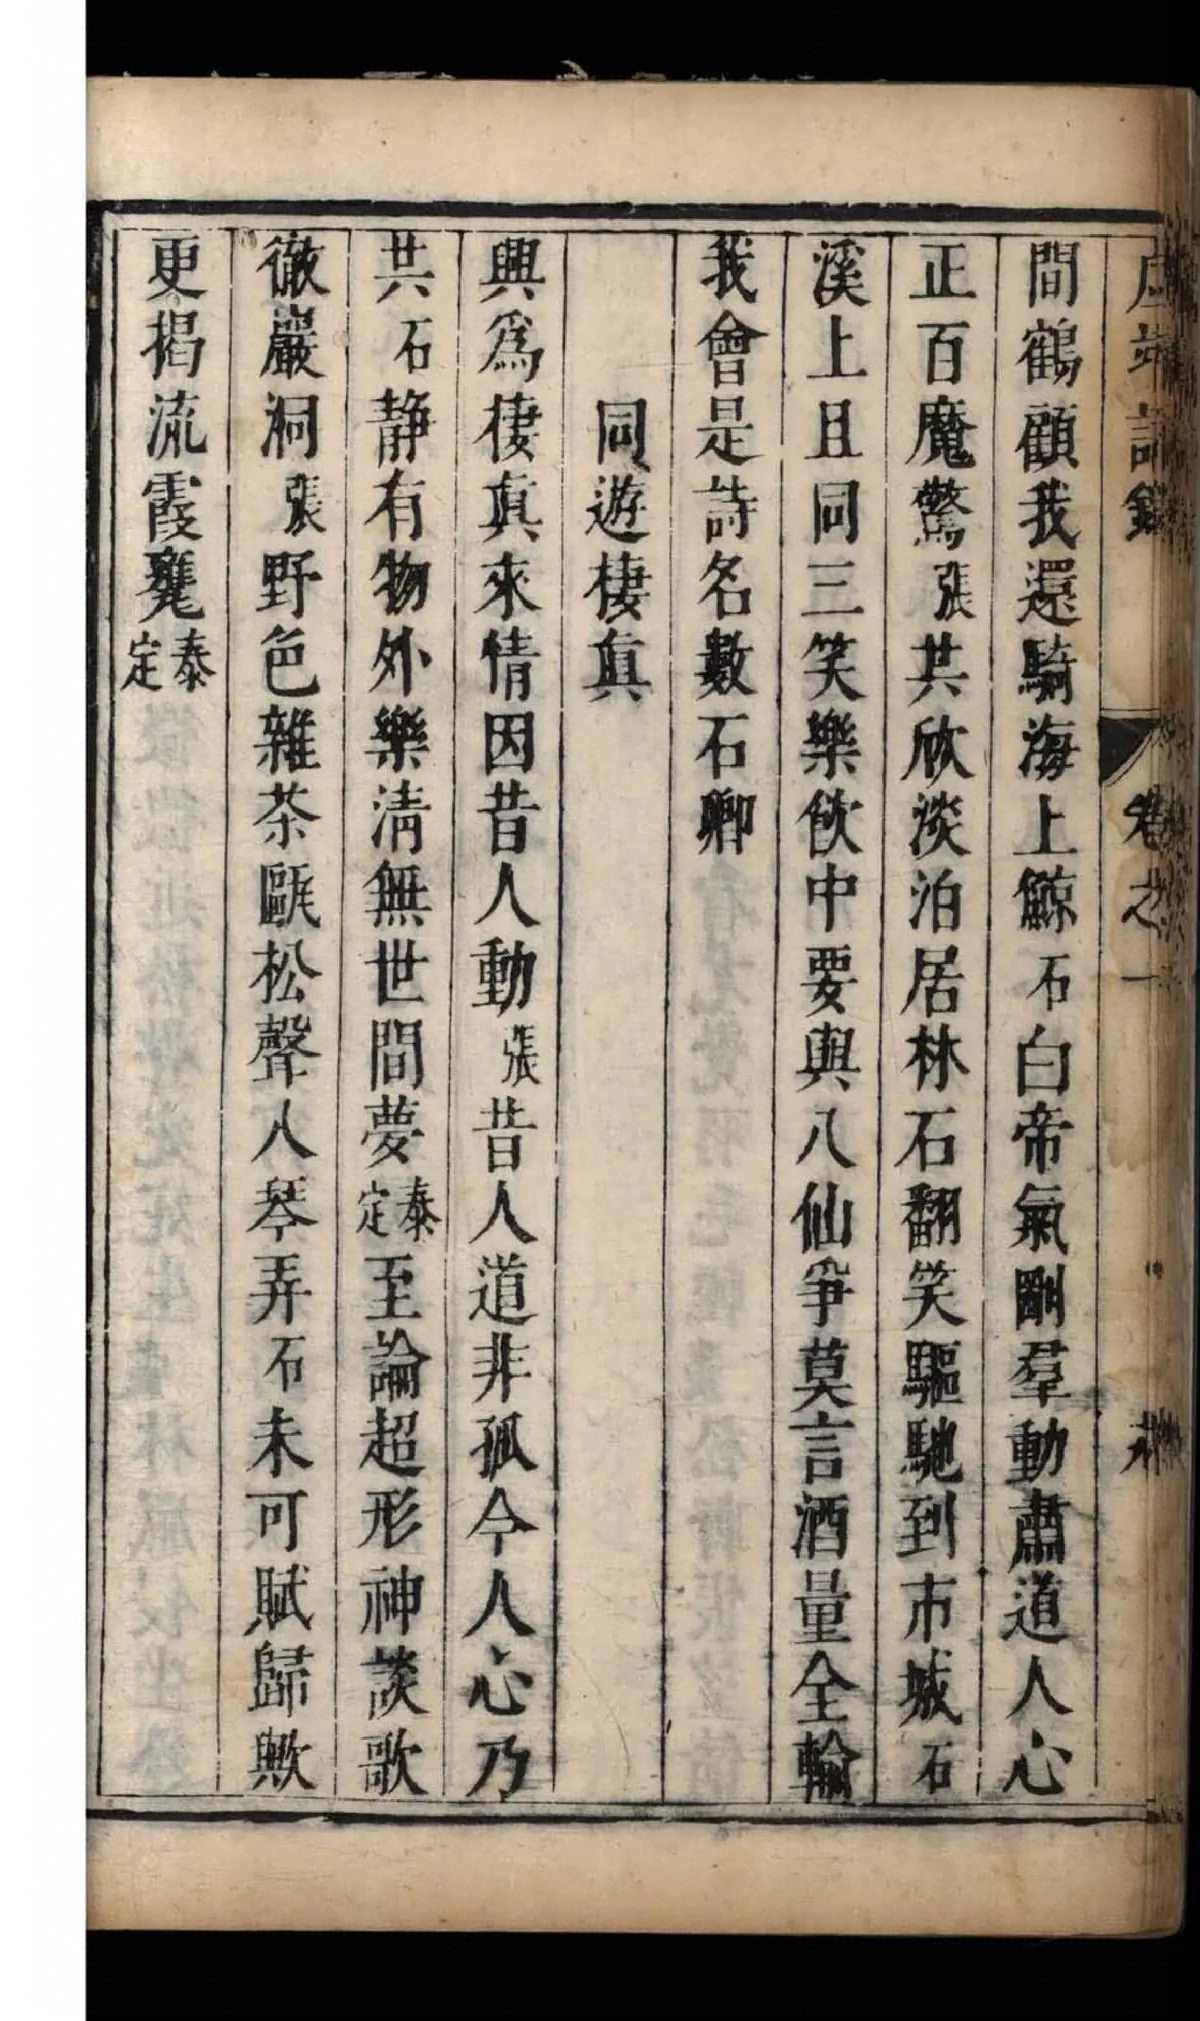 卷之一
間鶴顧我還騎海上鯨石白帝氣剛羣動肅道人心
正百魔驚張共欣淡泊居林石翻笑驅馳到市城石
溪上且同三笑樂飲中要與八仙爭莫言酒量全輸
我會是詩名數石卿
同遊棲真
興爲棲真來情因昔人動張昔人道非孤今人心乃
共石静有物外樂清無世間夢泰定至論超形神談歌
徹巖洞張野色雜茶甌松聲入琴弄石未可賦歸歟
更揭流霞甕泰定